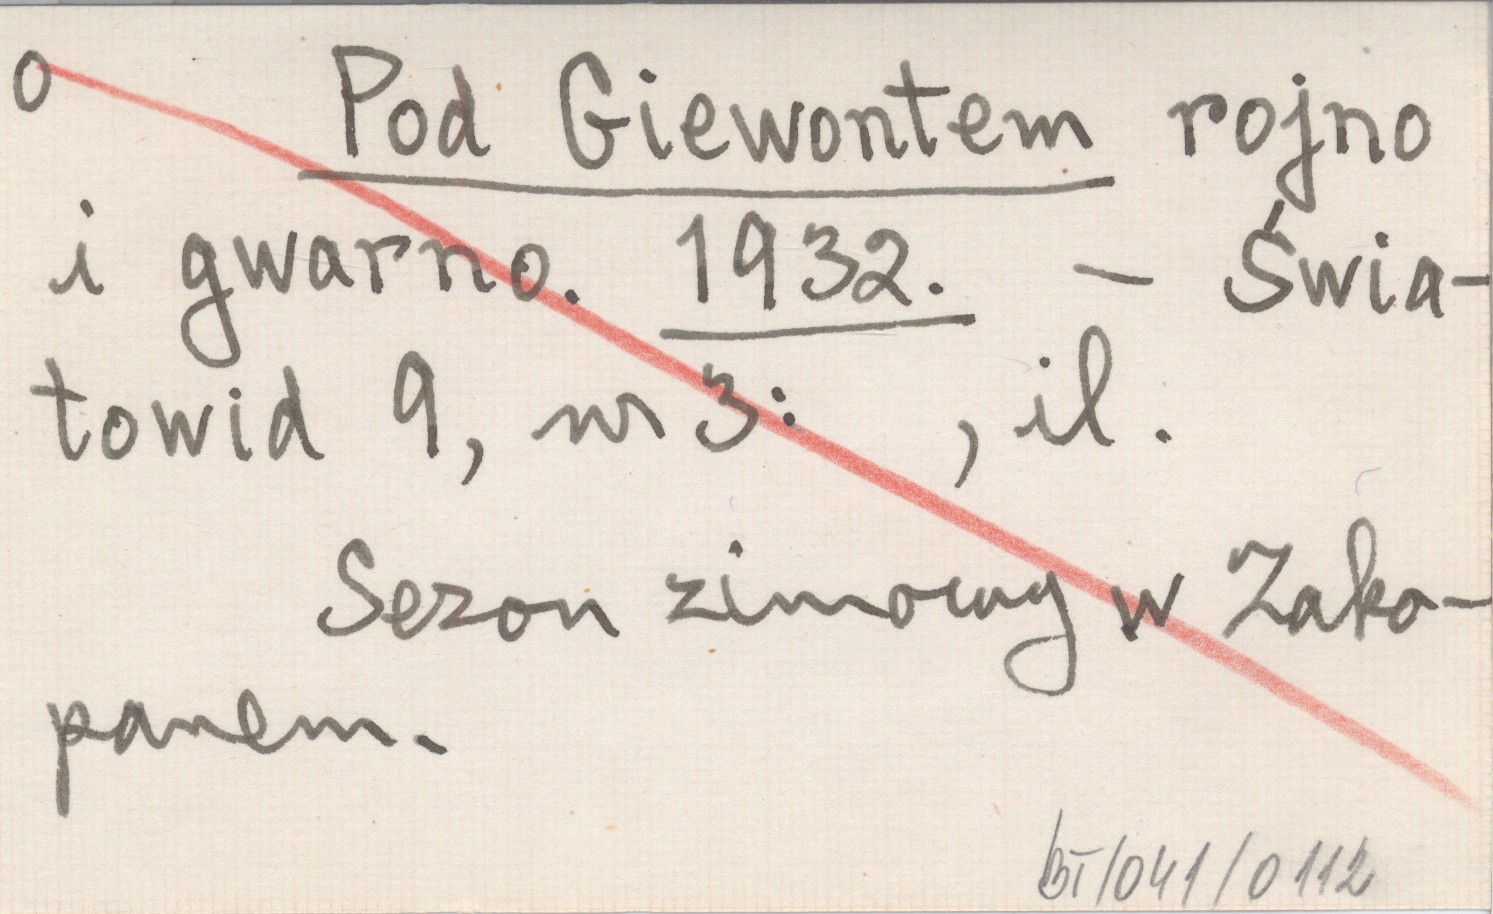 0 Pod Giewontem rojno
i gwarno. 1932. - Świa-
towid 9, nr 3: , il.
Sezon zimowy w Zako-
panem.
BT/041/0112